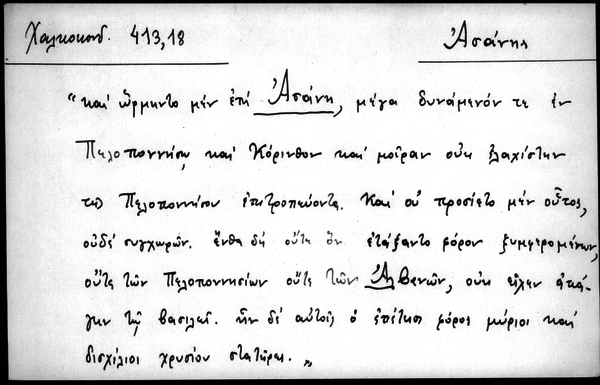 Χαλκοκονδ. 413,18
Ἀσάνης
"καὶ ὥρμηντο μὲν ἐπὶ Ἀσάνη, μέγα δυνάμενόν τε ἐν
Πελοποννήσῳ καὶ Κόρινθον καὶ μοῖραν οὐκ ἐλαχίστην
τῆς Πελοποννήσου ἐπιτροπεύοντα. Καὶ οὐ προσίετο μὲν οὗτος,
οὐδὲ συγχωρῶν. ἔνθα δὲ οὔτε ὃν ἐτάξαντο φόρον ξυμφερομένων,
οὔτε τῶν Πελοποννησίων οὔτε τῶν Ἀλβανῶν, οὐκ εἶχεν ἀπά-
γειν τῷ βασιλεῖ. ἦν δὲ αὐτοῖς ὁ ἐπέτειος φόρος μύριοι καὶ
δισχίλιοι χρυσίου στατῆρες. „